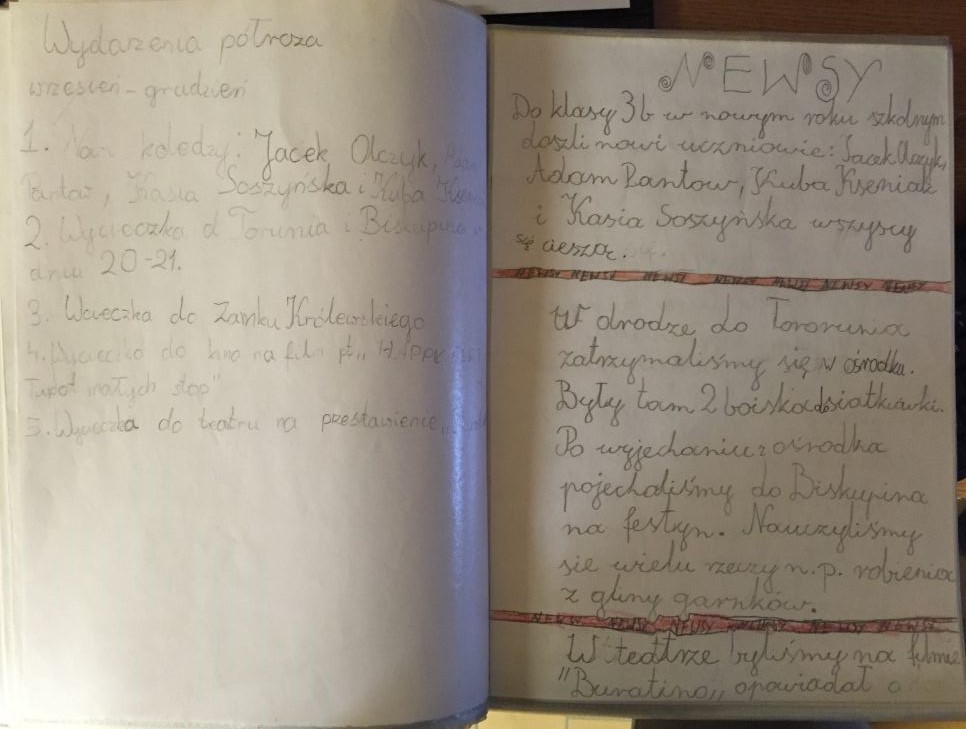 Wydarzenia półrocza
wrzesień - grudzień
1. koledzy: Jacek Olczyk,
Pantow, Kasia Soszyńska i Kuba
2. Wycieczka d Torunia i Biskupina
dniu 20-21.
3. Wcieczka do Zamku Królewskiego
4. Wycieczka do kina na film pt „
Tupot małych stop"
5. Wycieczka do teatru na przestawienie „
NEWSY
Do klasy 3b w nowym roku szkolnym
doszli nowi uczniowie: Jacek Olczyk,
Adam Pantow, Kuba Kseniak
i Kasia Soszyńska wszyscy
się cieszą.
NEWSY NEWSY NEWSY NEWSY NEWSY NEWSY NEWSY
W drodze do Tororunia
zatrzymaliśmy się w ośrodku.
Były tam 2 boiska do siatkuwki.
Po wyjechaniu z ośrodka
pojechaliśmy do Biskupina
na festyn. Nauczyliśmy
się wielu rzeczy n.p. robienia
z gliny garnków.
NEWSY NEWSY NEWSY NEWSY NEWSY NEWSY
W teatrze byliśmy na filmie
"Buratino„ opowiadał